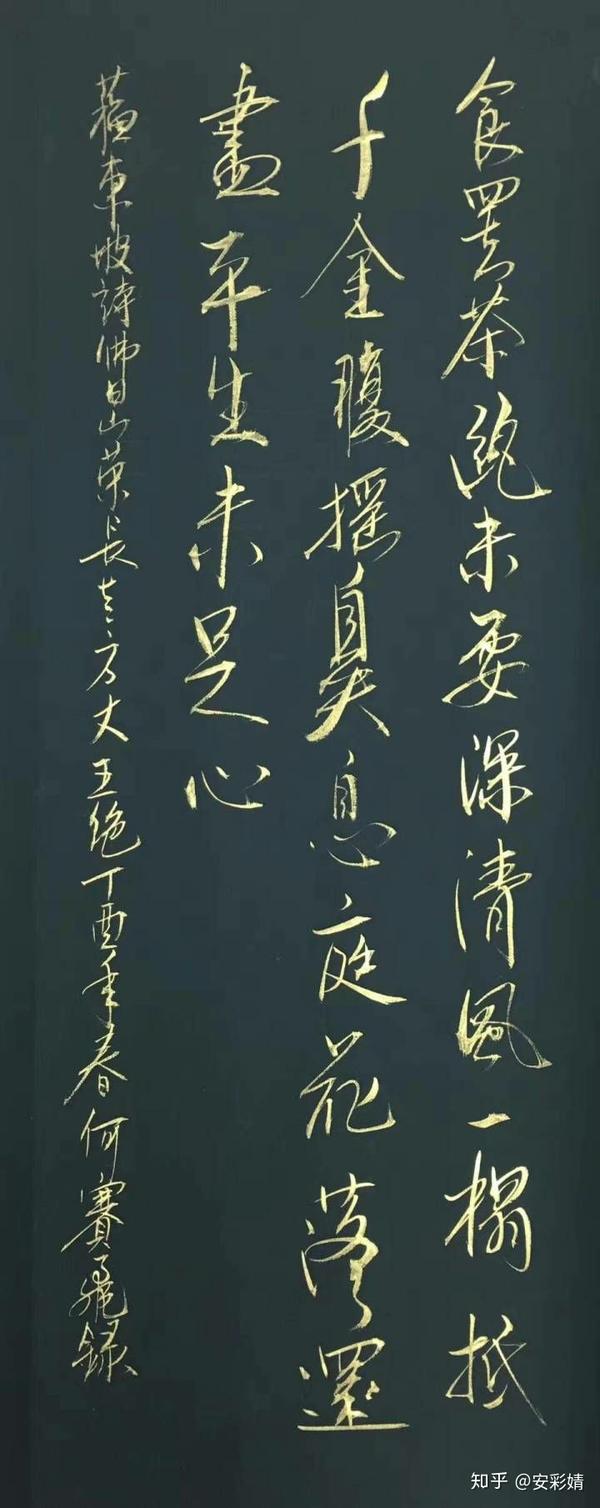 食罷茶瓯未要深清風一榻抵
千金腹摇鼻息庭花落還
盡平生未足心
蘓東坡詩佛日山荣長老方丈五绝丁酉年春何賽飛録
知乎 @安彩婧